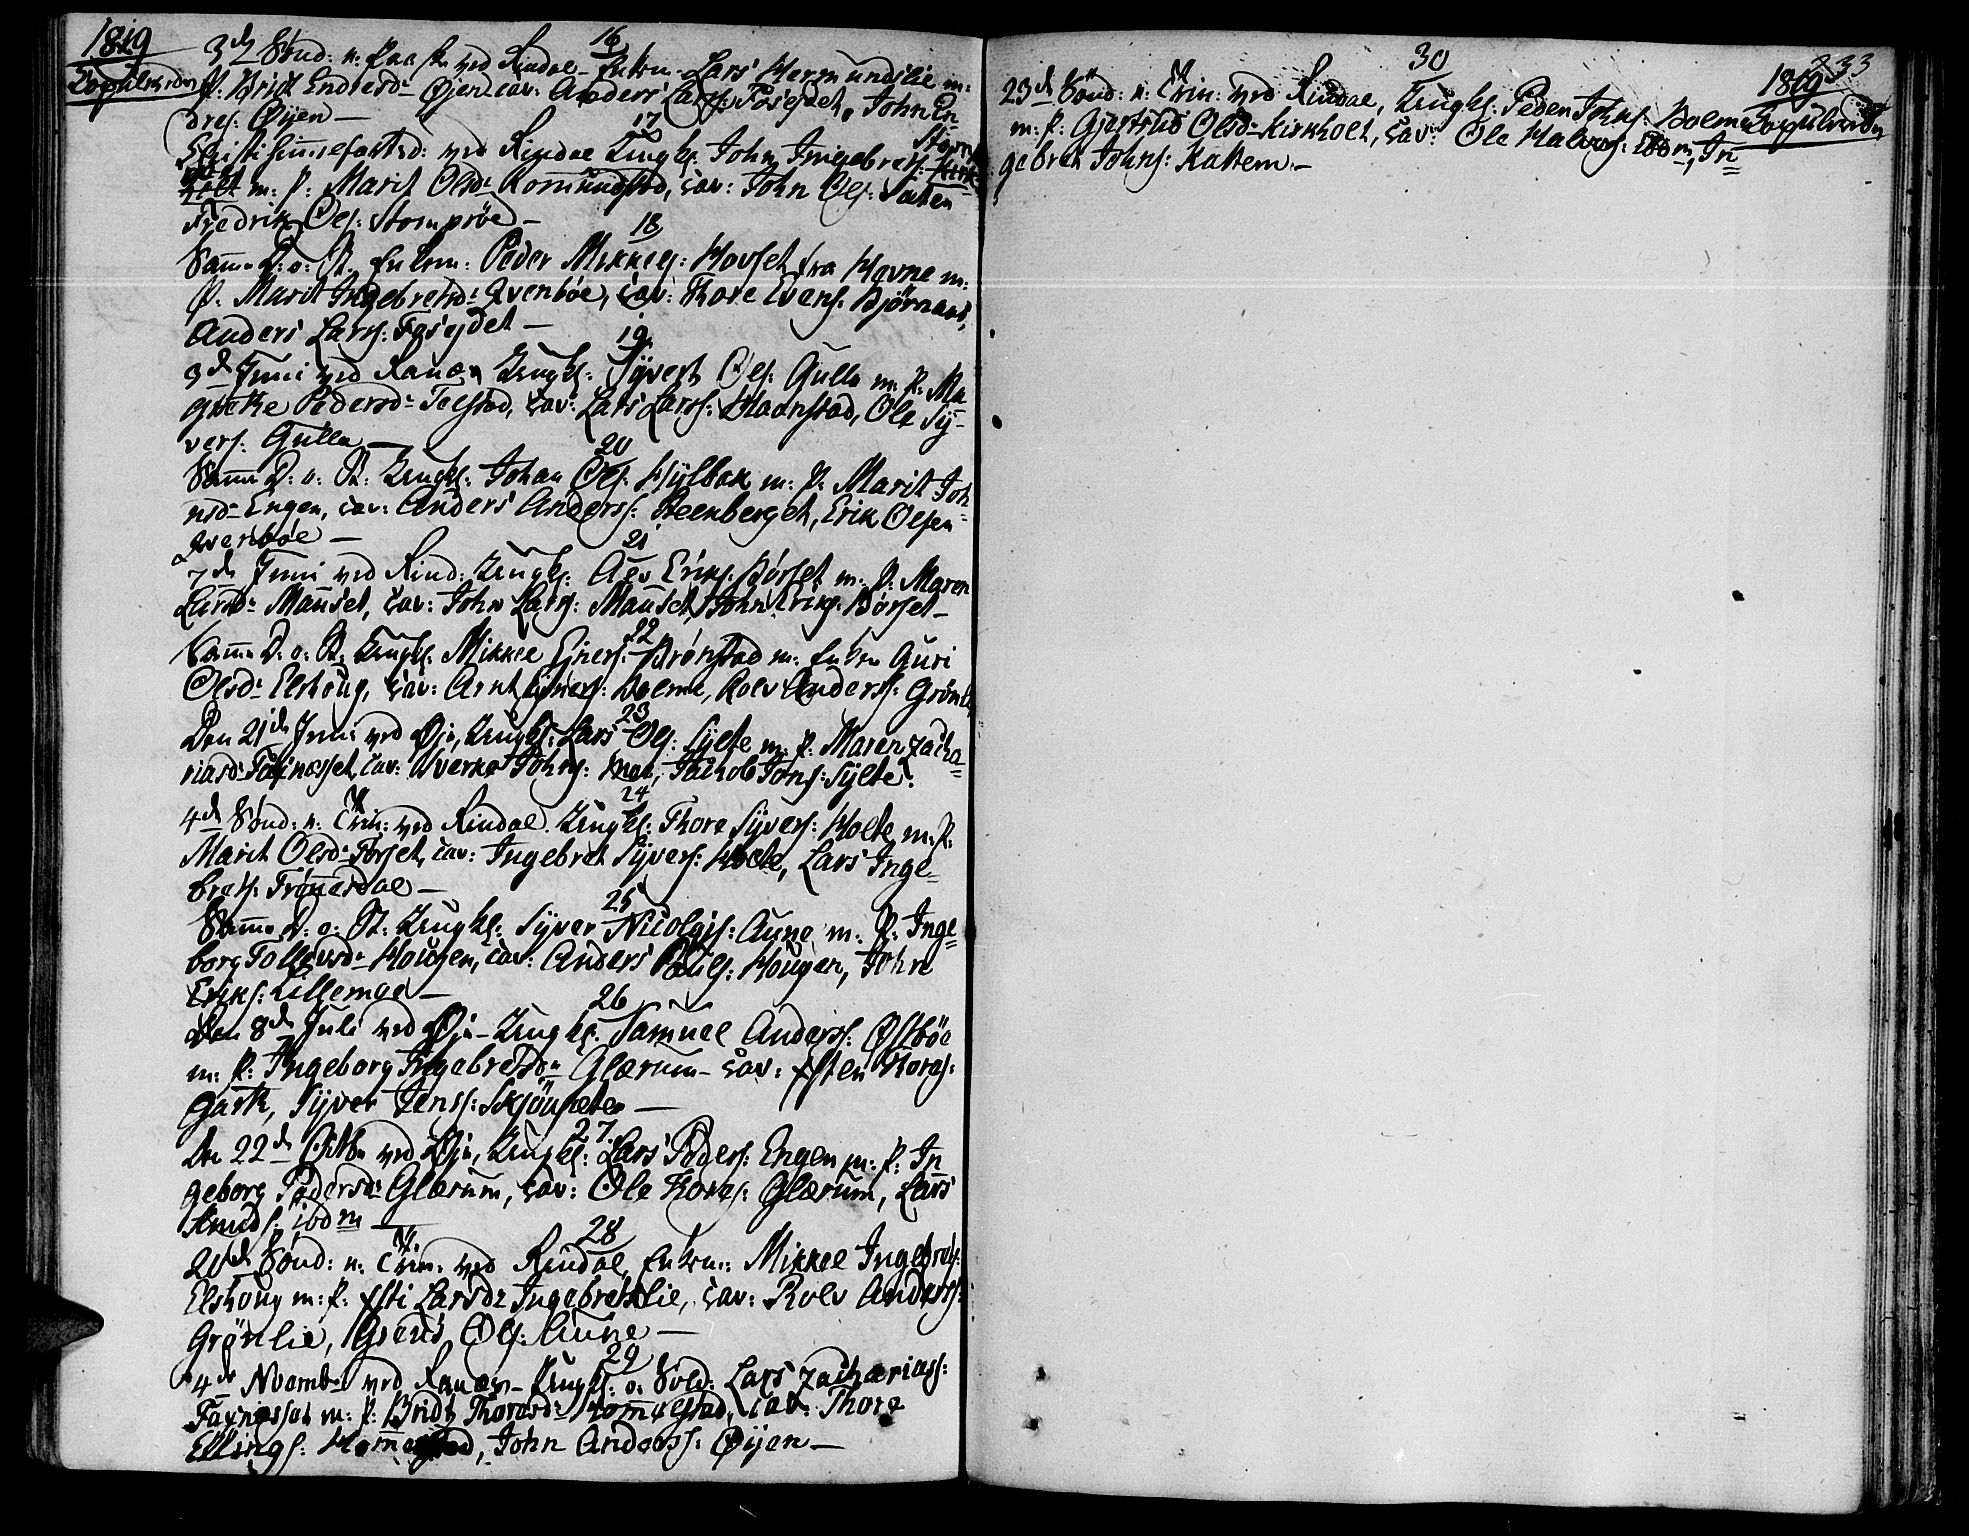 1819
Copulerede
16
3d Sønd: n: Paaske ved Rindal Enkem Lars Hermundslie m:
P. Brit Endresdr Øjen cav: Anders Lars: Foseydet, John En=
dres: Øyen —
17
Christi himmelfartsd: ved Rindal Ungkl: John Ingebrets:
Storn
holt m. P: Marit Olsdr Kommundstad, cav: John Ols:
Fredrik Ols: Stomprøe —
18
Samme D: o: St. Enkem: Peder Mikkels: Hovset fra Hevne m:
P. Marit Ingebretsdr Qvenbøe, cav: Tore Evens: Bjørnaas,
Anders Lars: Foseydet —
19
3d Juni ved Ranæs Ungkl: Syvert Ols: Gulla m: P: Ma
grethe Pedersdr Telstad, cav: Lars Larss: Haanstad, Ole Sy=
vers: Gulla —
20
Samme D. o: St: Ungkl: Johan Ols: Hylbak m: P: Marit Joh
nsdr Engen, cav: Anders Anderss: Steenberget, Erik Olsen
Qvenbøe —
21
7d Juni ved Rind: Ungkl: Ole Eriks: Børset m: P: Maren
Larsdr Mauset, cav: John Lars: Mauset, John Eriks: Børset —
22
Samme D. o: St. Ungkl: Mikkel Ejners: Brønstad m: Enken Guri
Olsdr Elshoug, cav: Arnt Ejners: Bolme, Rolv Anderss: Grønli
23
Den 21de Juni ved Øje, Ungkl: Lars Ols: Sylte m: P: Maren Zacha=
riasdr Taxnesset, cav: Sverke Johns: Moe, Jachob Jons: Sylte.
24
4d Sønd: n: Trin: ved Rindal Ungkl: Thore Syvers: Holte m: P:
Marit Olsdr Forset, cav: Ingebret Syvers: Holte, Lars Inge=
brets: Trønesdal —
25
Samme D. o: St: Ungkl: Syver Nicolajs: Aune m: P: Inge=
borg Tollevsdr Hougen, cav: Anders Pouls: Hougen, John
Eriks: Lillemoe —
26
Den 8de Juli ved Øje Ungkl: Samuel Anderss: Østbøe
m: P: Ingeborg Ingebretsdr Glærum — cav: Esten Tores:
Gark, Syver Jenss: Skjøulsete —
27.
Den 22de Octbr ved Øje, Ungkl: Lars Peders: Engen m: P: In
geborg Pedersdr Glærum, cav: Ole Tores: Glærum, Lars
Knuds: ibdm —
28
21de Sønd: n: Trin: ved Rindal, Enkem: Mikkel Ingebrets:
Elshoug m: P: Esti Larsdr Ingebretslie, cav: Rolv Anderss:
Grønlie, Ols: Aune —
29
4de Novembr ved Ranæs Ungkl: o: Sold: Lars Zachariass:
Taxnesset m: P: Bridt Thoresdr Homelstad, cav: Thore
Ellings: Homelstad, John Anderss: Øijen —
233
1819
Copulerede
30
23de Sønd: n: Trin: ved Rindal, Ungkl: Peder Johns: Bolme
m: P: Gjertrud Olsdr Kirkholt, cav: Ole Halvors: ibdm, In=
gebret Johns: Kattem —